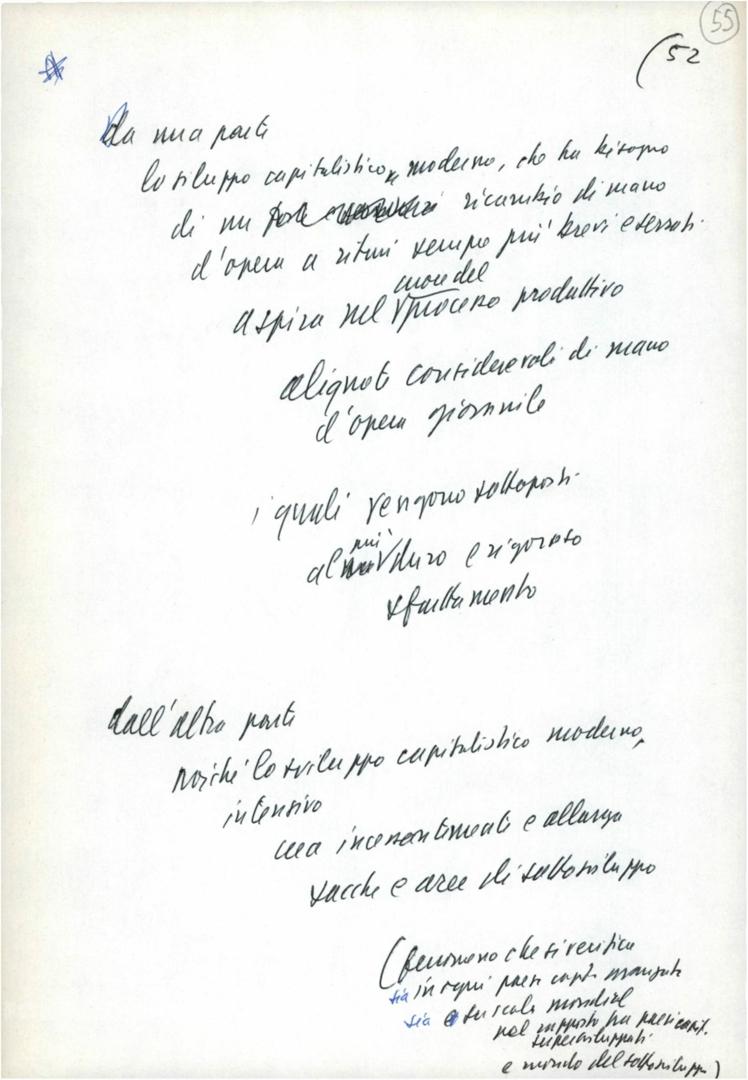 55
(52
da una parte
lo sviluppo capitalistico, moderno, che ha bisogno
di un forte ricambio di mano
d'opera a ritmi sempre più brevi e serrati
aspira nel cuore del processo produttivo
aliquote considerevoli di mano
d'opera giovanile
i quali vengono sottoposti
al più duro e rigoroso
sfruttamento
dall'altra parte
poiché lo sviluppo capitalistico moderno,
intensivo
crea incessantemente e allarga
sacche e aree di sottosviluppo
(fenomeno che si verifica
sia in ogni paese capit. avanzato
sia su scala mondiale
nel rapporto fra paesi capit.
supersviluppati
e mondo del sottosviluppo)